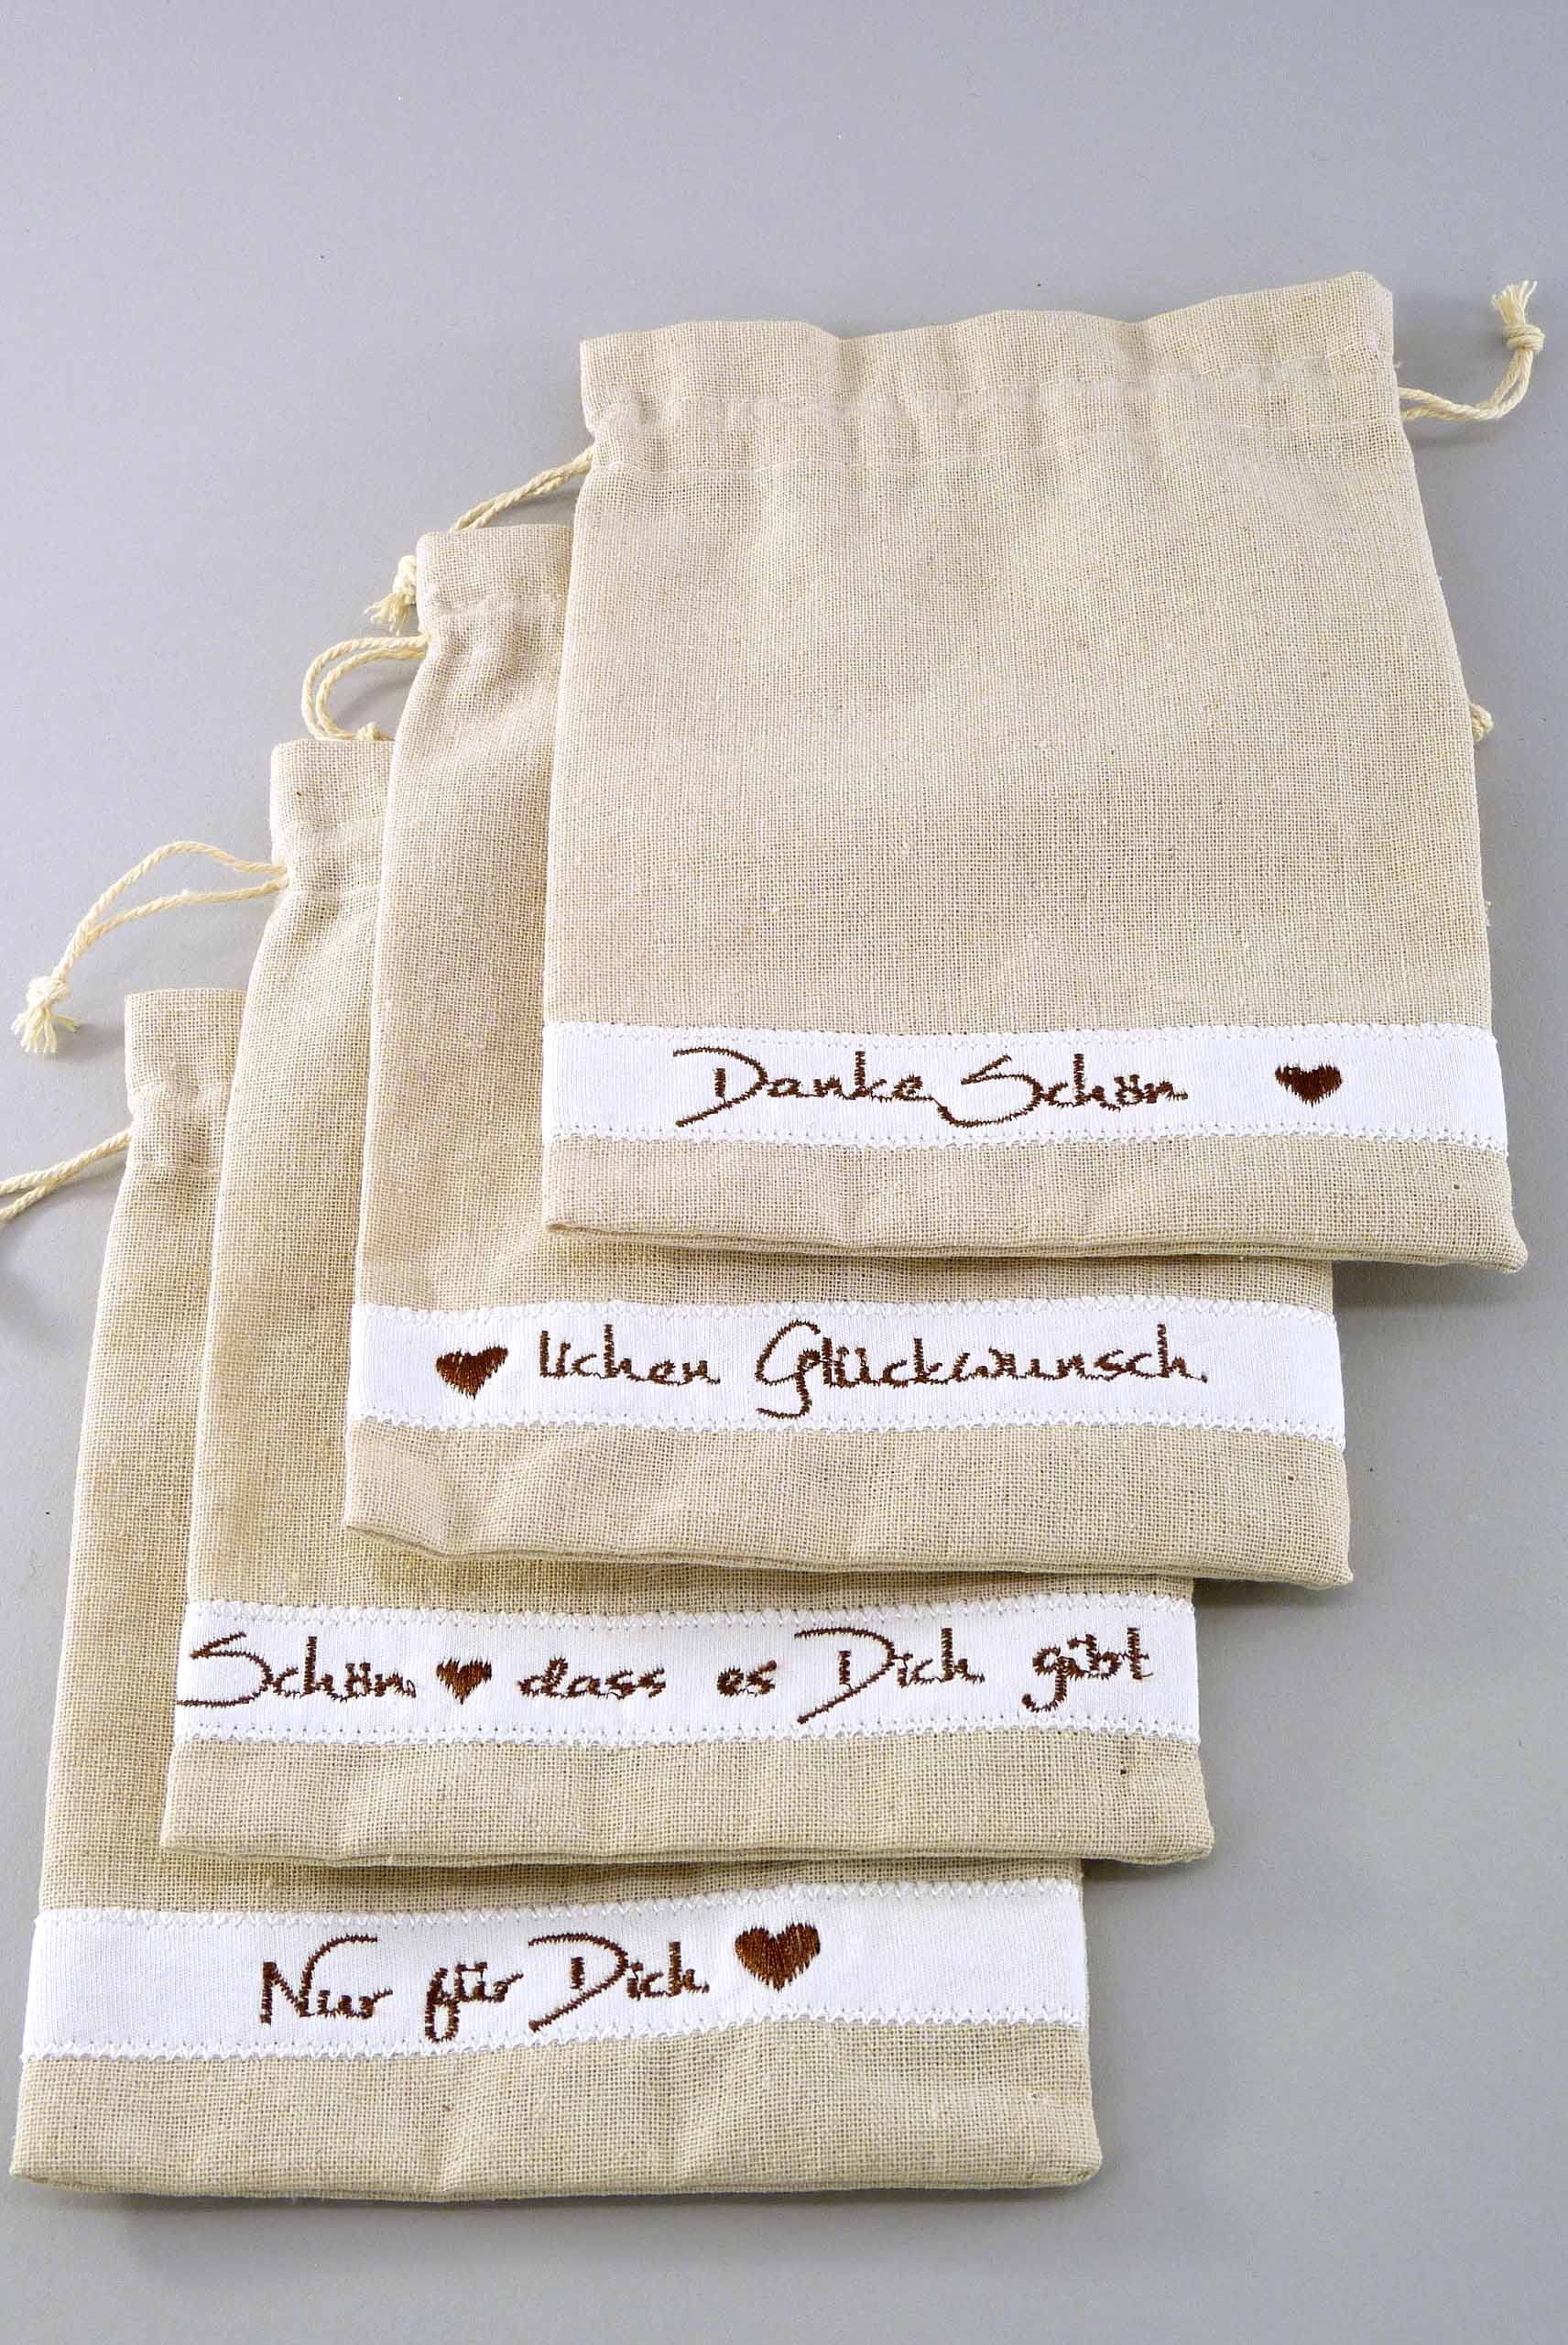 Danke Schön ♥
♥ lichen Glückwunsch
Schön ♥ dass es Dich gibt
Nur für Dich ♥